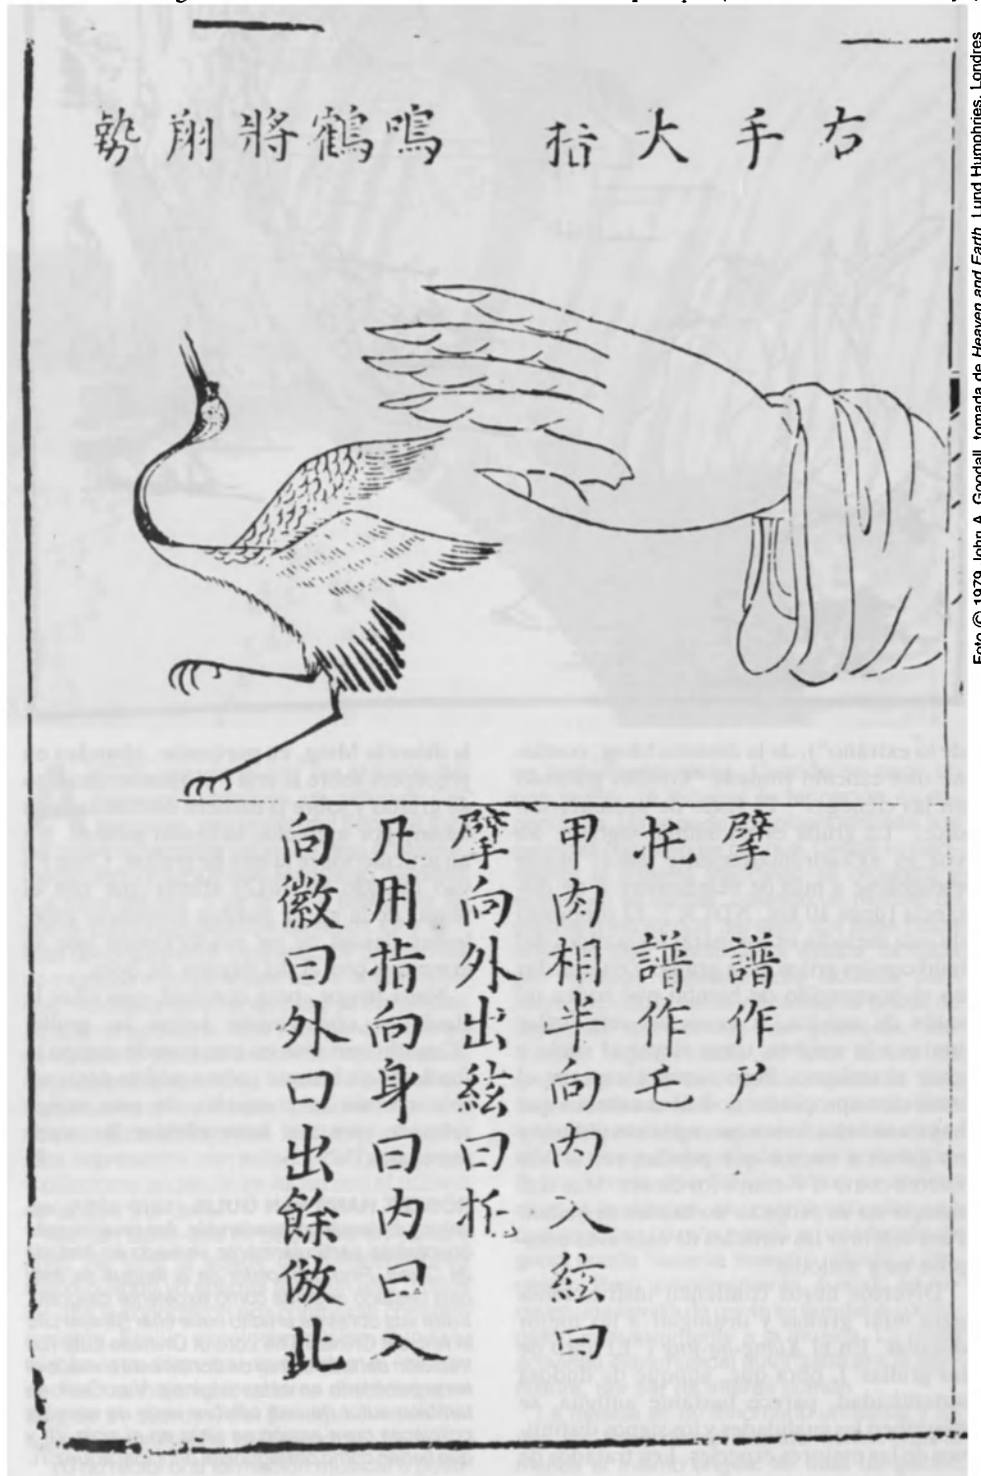 右手大指
鳴鶴將翔勢
擘 譜作尸
托 譜作乇
甲肉相半向内入絃曰
擘向外出絃曰托
凡用指向身曰内曰入
向徽曰外曰出餘倣此
Foto © 1979 John A. Goodall, tomada de Heaven and Earth, Lund Humphries, Londres